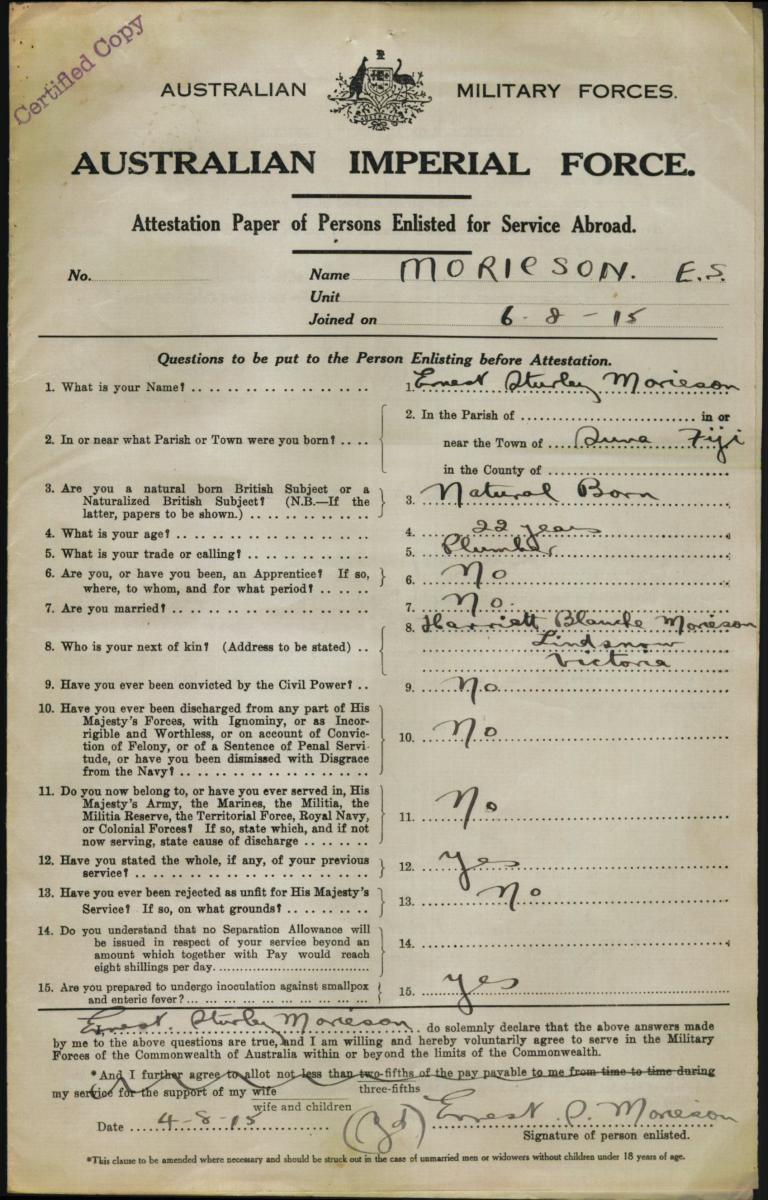 Certified Copy
AUSTRALIAN MILITARY FORCES.
AUSTRALIAN IMPERIAL FORCE.
Attestation Paper of Persons Enlisted for Service Abroad.
No. Name MORIESON. E.S.
Unit
Joined on 6-8-15
Questions to be put to the Person Enlisting before Attestation.
1. What is your Name? 1. Ernest Sturley Morieson
2. In or near what Parish or Town were you born? 2. In the Parish of in or
near the Town of Suva Fiji
in the County of
3. Are you a natural born British Subject or a
Naturalized British Subject? (N.B.—If the
latter, papers to be shown.) 3. Natural Born
4. What is your age? 4. 22 years
5. What is your trade or calling? 5. Plumber
6. Are you, or have you been, an Apprentice? If so,
where, to whom, and for what period? 6. No
7. Are you married? 7. No.
8. Who is your next of kin? (Address to be stated) 8. Harriett Blanche Morieson
Lindsnow
Victoria
9. Have you ever been convicted by the Civil Power? 9. No
10. Have you ever been discharged from any part of His
Majesty's Forces, with Ignominy, or as Incor-
rigible and Worthless, or on account of Convic-
tion of Felony, or of a Sentence of Penal Servi-
tude, or have you been dismissed with Disgrace
from the Navy? 10. No
11. Do you now belong to, or have you ever served in, His
Majesty's Army, the Marines, the Militia, the
Militia Reserve, the Territorial Force, Royal Navy,
or Colonial Forces? If so, state which, and if not
now serving, state cause of discharge 11. No
12. Have you stated the whole, if any, of your previous
service? 12. Yes
13. Have you ever been rejected as unfit for His Majesty's
Service? If so, on what grounds? 13. No
14. Do you understand that no Separation Allowance will
be issued in respect of your service beyond an
amount which together with Pay would reach
eight shillings per day. 14.
15. Are you prepared to undergo inoculation against smallpox
and enteric fever? 15. Yes
Ernest Sturley Morieson do solemnly declare that the above answers made
by me to the above questions are true, and I am willing and hereby voluntarily agree to serve in the Military
Forces of the Commonwealth of Australia within or beyond the limits of the Commonwealth.
*And I further agree to allot not less than two-fifths of the pay payable to me from time to time during
three-fifths
my service for the support of my wife
wife and children
Date 4-8-15 Ernest S. Morieson
Signature of person enlisted.
*This clause to be amended where necessary and should be struck out in the case of unmarried men or widowers without children under 18 years of age.